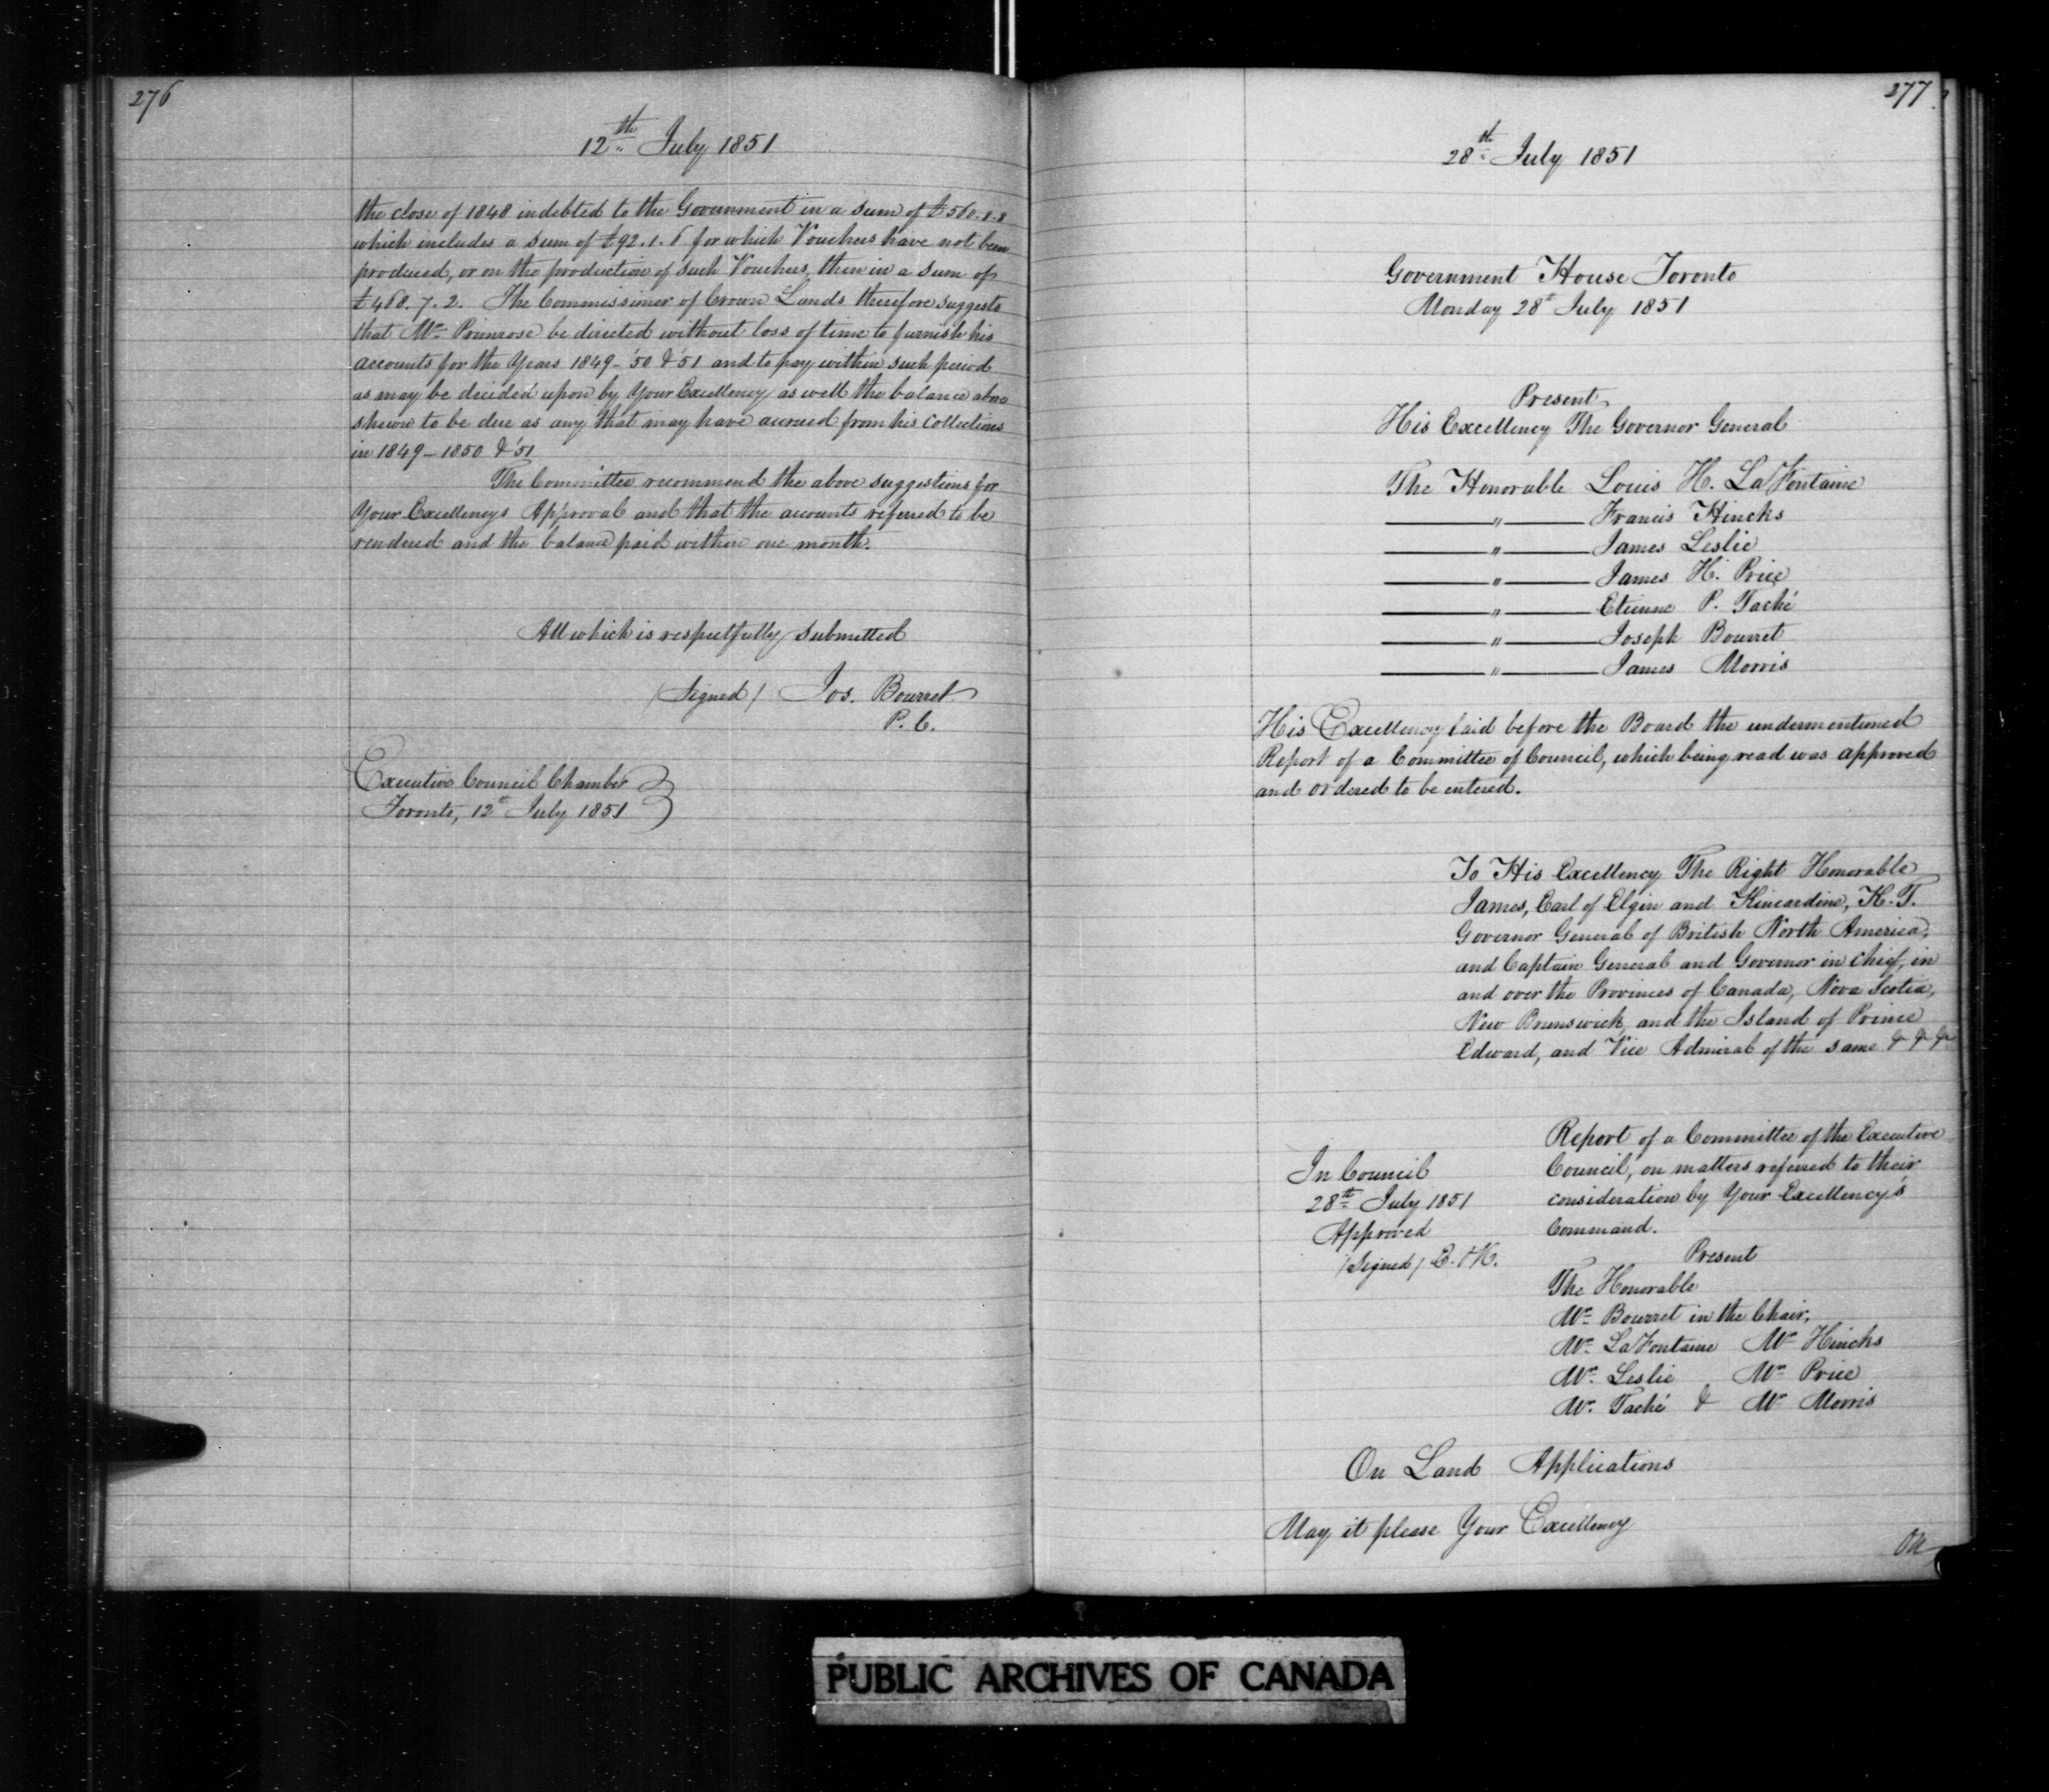 276
12th July 1851
the close of 1848 indebted to the Government in a sum of £560.8.8
which includes a sum of £92.1.6 for which Vouchers have not been
produced, or on the production of such Vouchers, then in a sum of
£468.7.2. The Commissioner of Crown Lands therefore suggests
that Mr. Primrose be directed without loss of time to furnish his
accounts for the Years 1849-'50 & '51 and to pay within such period
as may be decided upon by Your Excellency as well the balance above
shewn to be due as any that may have accrued from his Collections
in 1849-1850 & '51
The Committee recommend the above suggestions for
Your Excellencys Approval and that the accounts referred to be
rendered and the balance paid within one month.
All which is respectfully submitted
(Signed) Jos. Bourret
P. C.
Executive Council Chamber
Toronto, 12th July 1851
277
28th July 1851
Government House Toronto
Monday 28th July 1851
Present
His Excellency The Governor General
The Honorable Louis H. LaFontaine
—— " —— Francis Hincks
—— " —— James Leslie
—— " —— James H. Price
—— " —— Etienne P. Taché
—— " —— Joseph Bourret
—— " —— James Morris
His Excellency laid before the Board the undermentioned
Report of a Committee of Council, which being read was approved
and ordered to be entered.
To His Excellency The Right Honorable
James, Earl of Elgin and Kincardine, K.T.
Governor General of British North America,
and Captain General and Governor in Chief, in
and over the Provinces of Canada, Nova Scotia,
New Brunswick, and the Island of Prince
Edward, and Vice Admiral of the same &c &c &c
In Council
28th July 1851
Approved
(Signed) E. & K.
Report of a Committee of the Executive
Council, on matters referred to their
consideration by Your Excellency's
Command.
Present
The Honorable
Mr. Bourret in the Chair,
Mr. LaFontaine Mr. Hincks
Mr. Leslie Mr. Price
Mr. Taché & Mr. Morris
On Land Applications
May it please Your Excellency
On
PUBLIC ARCHIVES OF CANADA